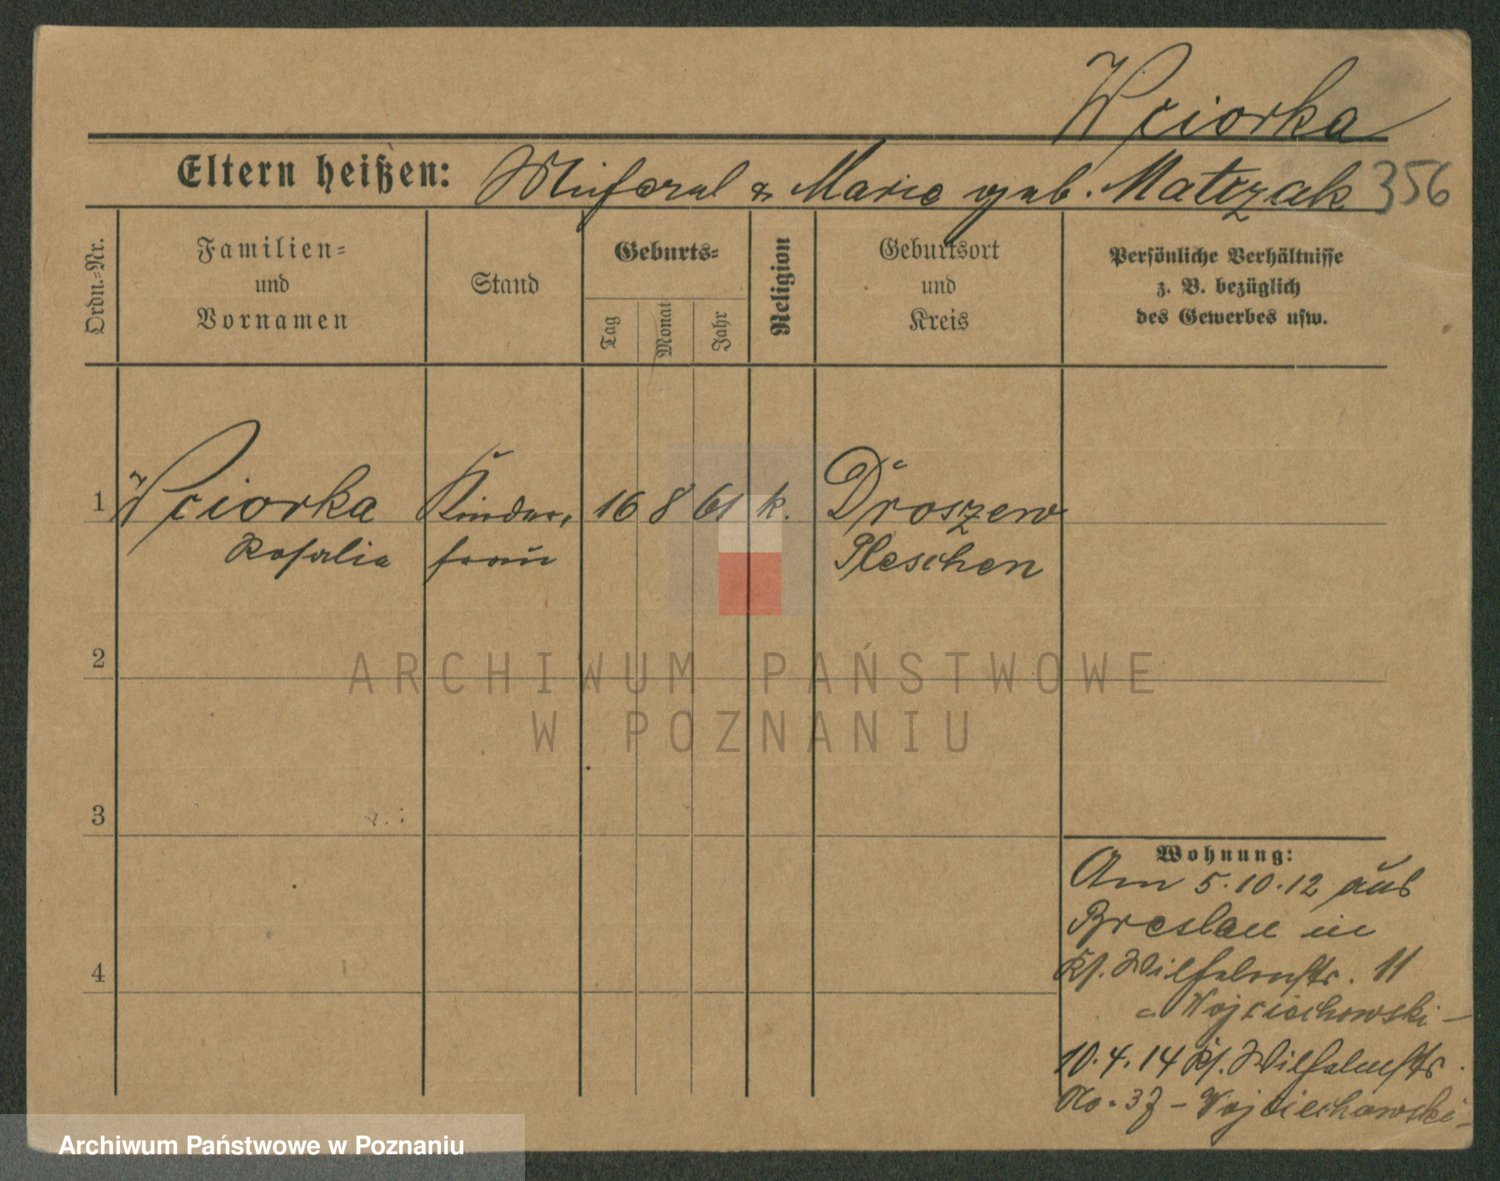 Wciorka
Eltern heißen: Michael & Marie geb. Matczak 356
Ordn.-Nr.
Familien-
und
Vornamen
Stand
Geburts-
Tag
Monat
Jahr
Religion
Geburtsort
und
Kreis
Persönliche Verhältnisse
z. B. bezüglich
des Gewerbes usw.
1 Wciorka Kinder- 16 8 61 k. Droszew
Rosalie frau Pleschen
2
ARCHIWUM PAŃSTWOWE
W POZNANIU
3
Wohnung:
Am 5.10.12 aus
Breslau in
Ks. Wilhelmstr. 11
Wojciechowski –
4
10.4.14 Ks. Wilhelmstr.
No. – Wojciechowski –
Archiwum Państwowe w Poznaniu